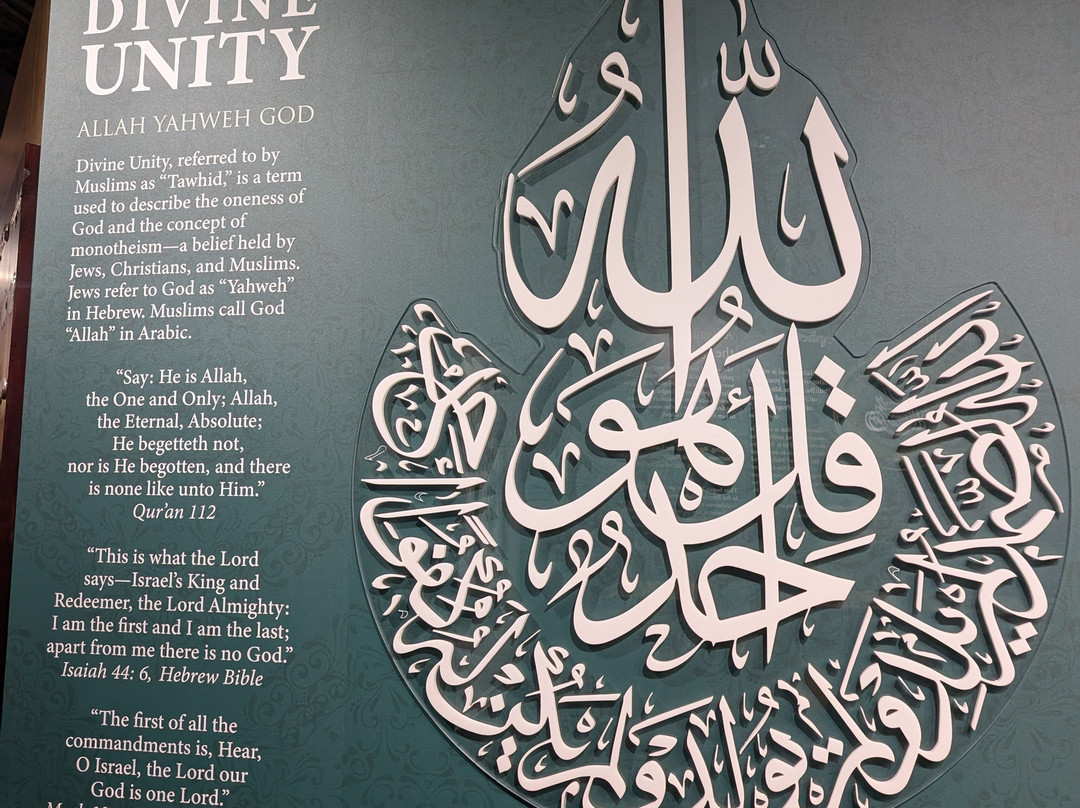 DIVINE
UNITY
ALLAH YAHWEH GOD
Divine Unity, referred to by
Muslims as “Tawhid,” is a term
used to describe the oneness of
God and the concept of
monotheism—a belief held by
Jews, Christians, and Muslims.
Jews refer to God as “Yahweh”
in Hebrew. Muslims call God
“Allah” in Arabic.
“Say: He is Allah,
the One and Only; Allah,
the Eternal, Absolute;
He begetteth not,
nor is He begotten, and there
is none like unto Him.”
Qur’an 112
“This is what the Lord
says—Israel’s King and
Redeemer, the Lord Almighty:
I am the first and I am the last;
apart from me there is no God.”
Isaiah 44: 6, Hebrew Bible
“The first of all the
commandments is, Hear,
O Israel, the Lord our
God is one Lord.”
قل هو الله أحد
ولم يولد ولم يكن له كفوا أحد